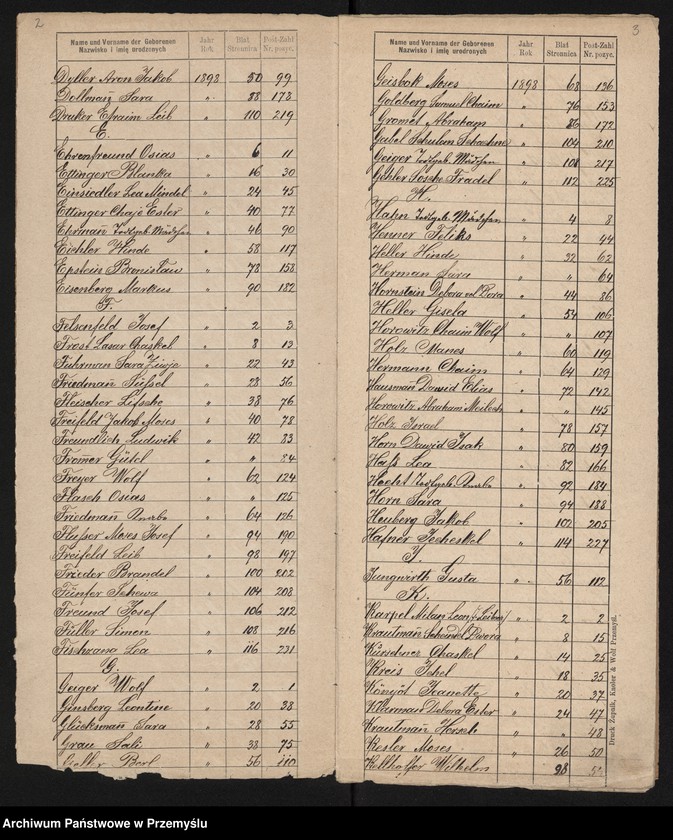 2
Name und Vorname der Geborenen
Nazwisko i imię urodzonych
Jahr
Rok
Blat
Stronnica
Post-Zahl
Nr. pozyc.
Dyller Aron Jakob 1898 50 99
Dollmañ Sara " 88 173
Druker Efraim Leib " 110 219
E.
Ehrenfreund Osias " 6 11
Ettinger Blanka " 16 30
Einsiedler Lea Mindel " 24 45
Ettinger Chaje Ester " 40 77
Ehrmañ Todtgeb. Mädchen " 46 90
Eichler Hinde " 58 117
Epstein Bronisław " 78 158
Eisenberg Markus " 90 182
F.
Felsenfeld Josef " 2 3
Frost Lasar Chaskel " 8 13
Fuhrman Sara " 22 43
Friedman " 28 56
Fleischer Lifsche " 38 76
Freifeld Jakob Moses " 40 78
Freundlich Ludwik " 42 83
Fromer Gütel " " 84
Freyer Wolf " 62 124
Flasch Osias " " 125
Friedmañ " 64 126
Moses Josef " 94 190
Freifeld Leib " 98 197
Frieder Brandel " 100 202
Fünfer Schewa " 104 208
Freund Josef " 106 212
Füller Simon " 108 216
Fischzang Lea " 116 231
G.
Geiger Wolf " 2 1
Ginsberg Leontine " 20 38
Glücksmañ Sara " 28 55
Grau Sali " 38 75
Berl " 56 110
3
Name und Vorname der Geborenen
Nazwisko i imię urodzonych
Jahr
Rok
Blatt
Stronnica
Post-Zahl
Nr. pozyc.
Geisbok Moses 1898 68 136
Goldberg Samuel Chaim " 76 153
Gromet Abraham " 86 172
Gabel Schulem Schachne " 104 210
Geiger Todtgeb. Mädchen " 108 217
Gohler Fradel " 112 225
H.
Hahn Todtgeb. Mädchen " 4 8
Henner Feliks " 22 44
Heller Hinde " 32 62
Herman Sara " " 64
Hornstein Debora vel Dora " 44 86
Heller Gisela " 54 106
Horowitz Chaim Wolf " " 107
Holz Manes " 60 119
Hermann Chaim " 64 129
Hausman Dawid Elias " 72 142
Horowitz Abraham " " 145
Holz Israel " 78 157
Horn Dawid Isak " 80 159
Hass Lea " 82 166
Hecht Todtgeb. " 92 184
Horn Sara " 94 188
Heuberg Jakob " 102 205
Hafner Jecheskel " 114 227
J.
Jungwirth Gusta " 56 112
K.
Karpel Milan Leon " 2 2
Krautmañ Scheindel Dwora " 8 15
Kürschner Chaskel " 14 25
Kreis " 18 35
Jeanette " 20 37
Debora Ester " 24 47
Krautman Hersch " " 48
Kesler Moses " 26 50
Wilhelm 28
Druck Żupnik, Knoller & Wolf Przemyśl.
Archiwum Państwowe w Przemyślu